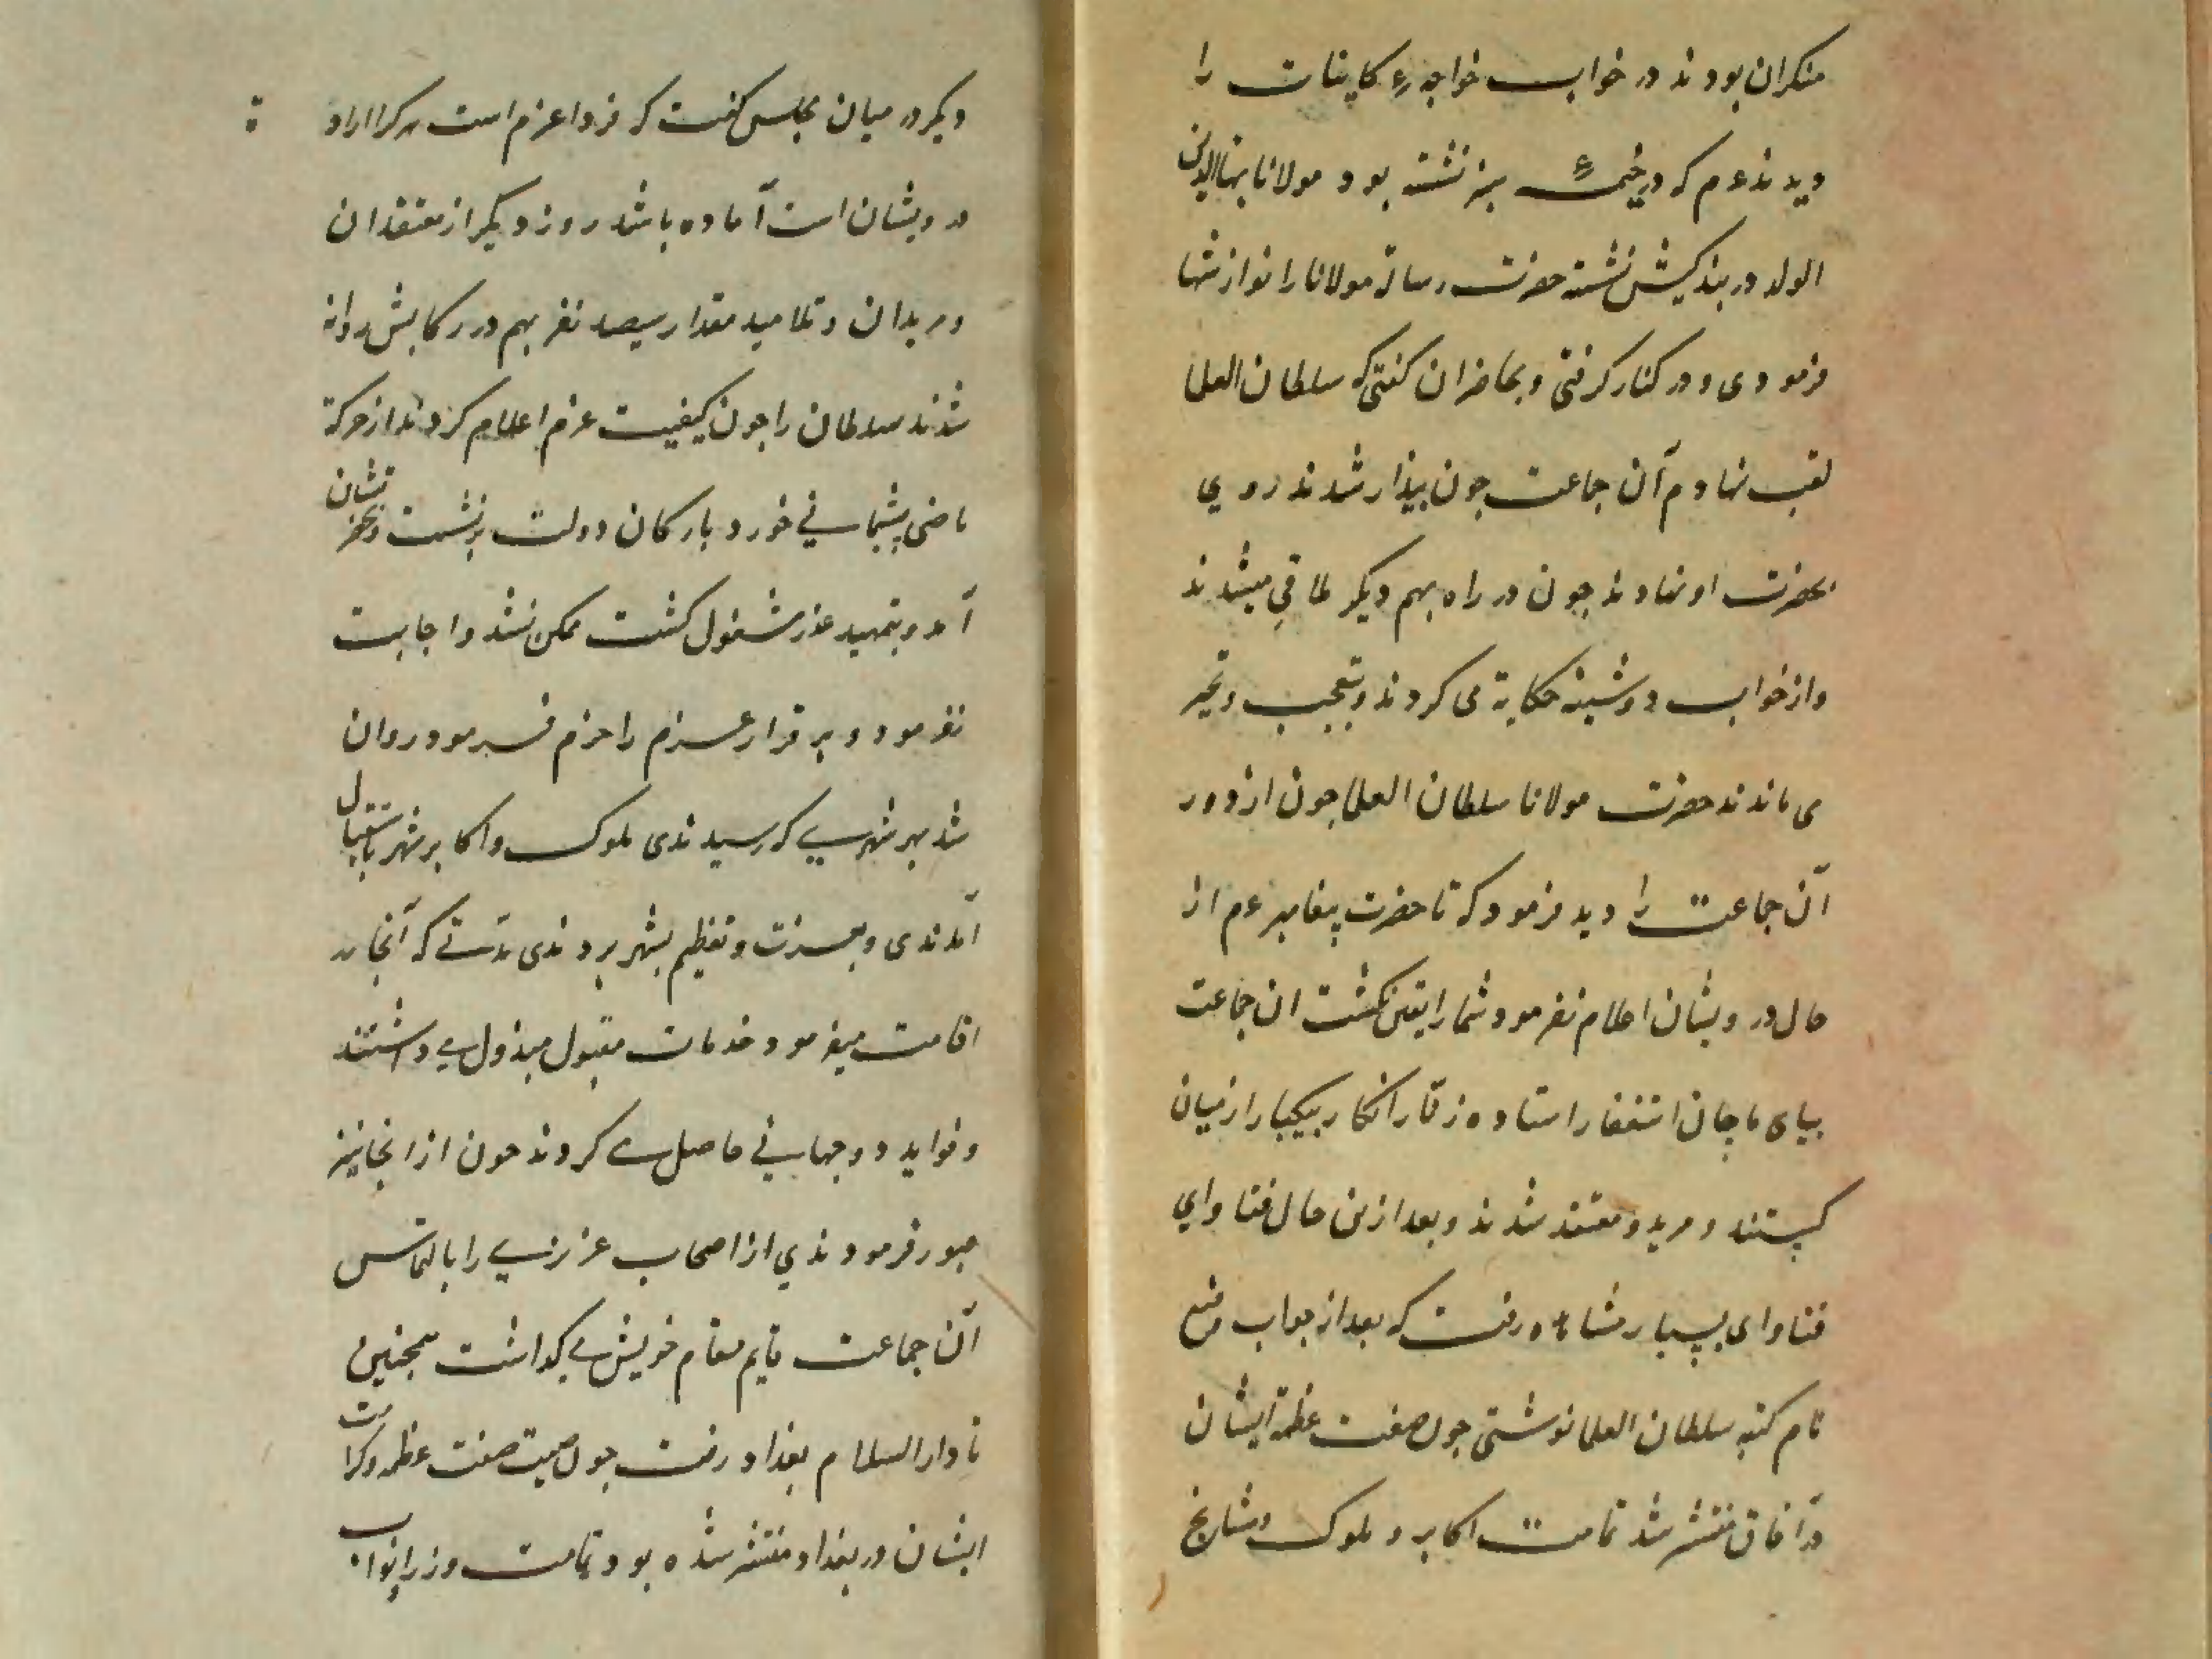 منکران بودند در خواب خواجهٔ کاینات را
دیدند عم که در خیمهٔ سبز نشسته بود مولانا بهاالدین
الولد در بندکیش نشسته حضرت رسالة مولانا را نوازشها
فرمودی و در کنار کرفتی و بحاضران کفتی که سلطان العلما
لقب نهادم آن جماعت جون بیذار شدند روی
بحضرت او نهادند جون در راه بهم دیکر ملاقی میشدند
و از خواب دوشینه حکایة می کردند و بتعجب و تحیر
می ماندند حضرت مولانا سلطان العلما جون از دور
آن جماعت را دید فرمود که تا حضرت پیغامبر عم از
حال درویشان اعلام نفرمود شما را یقین نکشت ان جماعت
بپای ماجان استغفار استاده زنار انکار بیکبار از میان
کسستند و مرید و معتقد شدند و بعد ازین حال فتاوای
فتاوای بسیار مشاهده رفت که بعد از جواب موضع
نام کنیه سلطان العلما نوشتی جون صفت عظمة ایشان
در آفاق منتشر شد تمامت اکابر و ملوک و مشایخ
دیکر در میان مجلس کفت که فردا عزم است هر کرا ارادة
درویشان است آماده باشد روز دیکر از معتقدان
و مریدان و تلامید مقدار سیصد نفر بهم در رکابش روانه
شدند سلطان را جون کیفیت عزم اعلام کردند از حرکة
ماضی پشیمانی خورد با ارکان دولت برنشست و بحضرتشان
آمد و بتمهید عذر مشغول کشت ممکن نشد و اجابت
نفرمود و برقرار عزم را حزم فرمود روان
شد بهر شهری که رسیدندی ملوک و اکابر شهر باستقبال
آمدندی و بعزت و تعظیم بشهر بردندی مدتی که آنجا
اقامت میفرمود خدمات مقبول مبذول می داشتند
و فواید دو جهانی حاصل می کردند جون از انجا نیز
عبور فرمودندی از اصحاب عزیزی را بالتماس
آن جماعت قایم مقام خویش می کذاشت همجنین
تا دار السلام بغداد رفت جون صیت صفت عظمة و کرامت
ایشان در بغداد منتشر شده بود تمامت وزرا و نواب